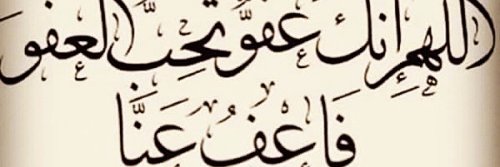 اللهم إنك عفوٌّ تحِبُّ العفو
فَاعْفُ عَنَّا